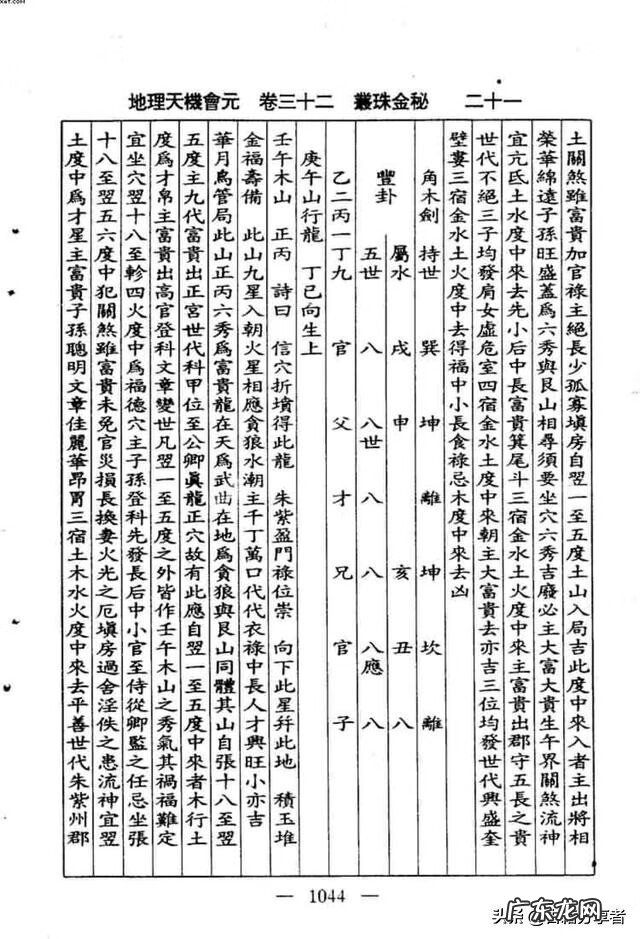 xt.com
地理天機會元　卷三十二　叢珠金秘　二十一
土關煞雖富貴加官祿主絕長少孤寡塡房自翌一至五度土山入局吉此度中來入者主出將相
榮華綿遠子孫旺盛蓋爲六秀與艮山相尋須要坐穴六秀吉廢必主大富大貴生午界關煞流神
宜亢氐土水度中來去先小后中長富貴箕尾斗三宿金水土火度中來主富貴出郡守五長之貴
世代不絕三子均發肩女虛危室四宿金水土度中來朝主大富貴去亦吉三位均發世代興盛奎
壁婁三宿金水土火度中去得福中小長食祿忌木度中來去凶
角木劍　持世　巽　坤　離　坤　坎　離
豐卦　屬水　戌　申　　亥　丑　八
五世　八　八世　八　八　八應　八
乙二丙一丁九　官　父　才　兄　官　子
庚午山行龍　丁巳向生上
壬午木山　正丙　詩曰　信穴折墳得此龍　朱紫盈門祿位崇　向下此星幷此地　積玉堆
金福壽備　此山九星入朝火星相應貪狼水潮主千丁萬口代代衣祿中長人才興旺小亦吉
華月爲管局此山正丙六秀爲富貴龍在天爲武曲在地爲貪狼與艮山同體其山自張十八至翌
五度主九代富貴出正宮世代科甲位至公卿眞龍正穴故有此應自翌一至五度中來者木行土
度爲才帛主富貴出高官登科文章變世凡翌一至五度之外皆作壬午木山之秀氣其禍福難定
宜坐穴翌十八至軫四火度中爲福德穴主子孫登科先發長后中小官至侍從卿監之任忌坐張
十八至翌五六度中犯關煞雖富貴未免官災損長換妻火光之厄塡房過舍淫佚之患流神宜翌
土度中爲才星主富貴子孫聰明文章佳麗華昂胃三宿土木水火度中來去平善世代朱紫州郡
— 1044 —
广东龙网
头条
享者